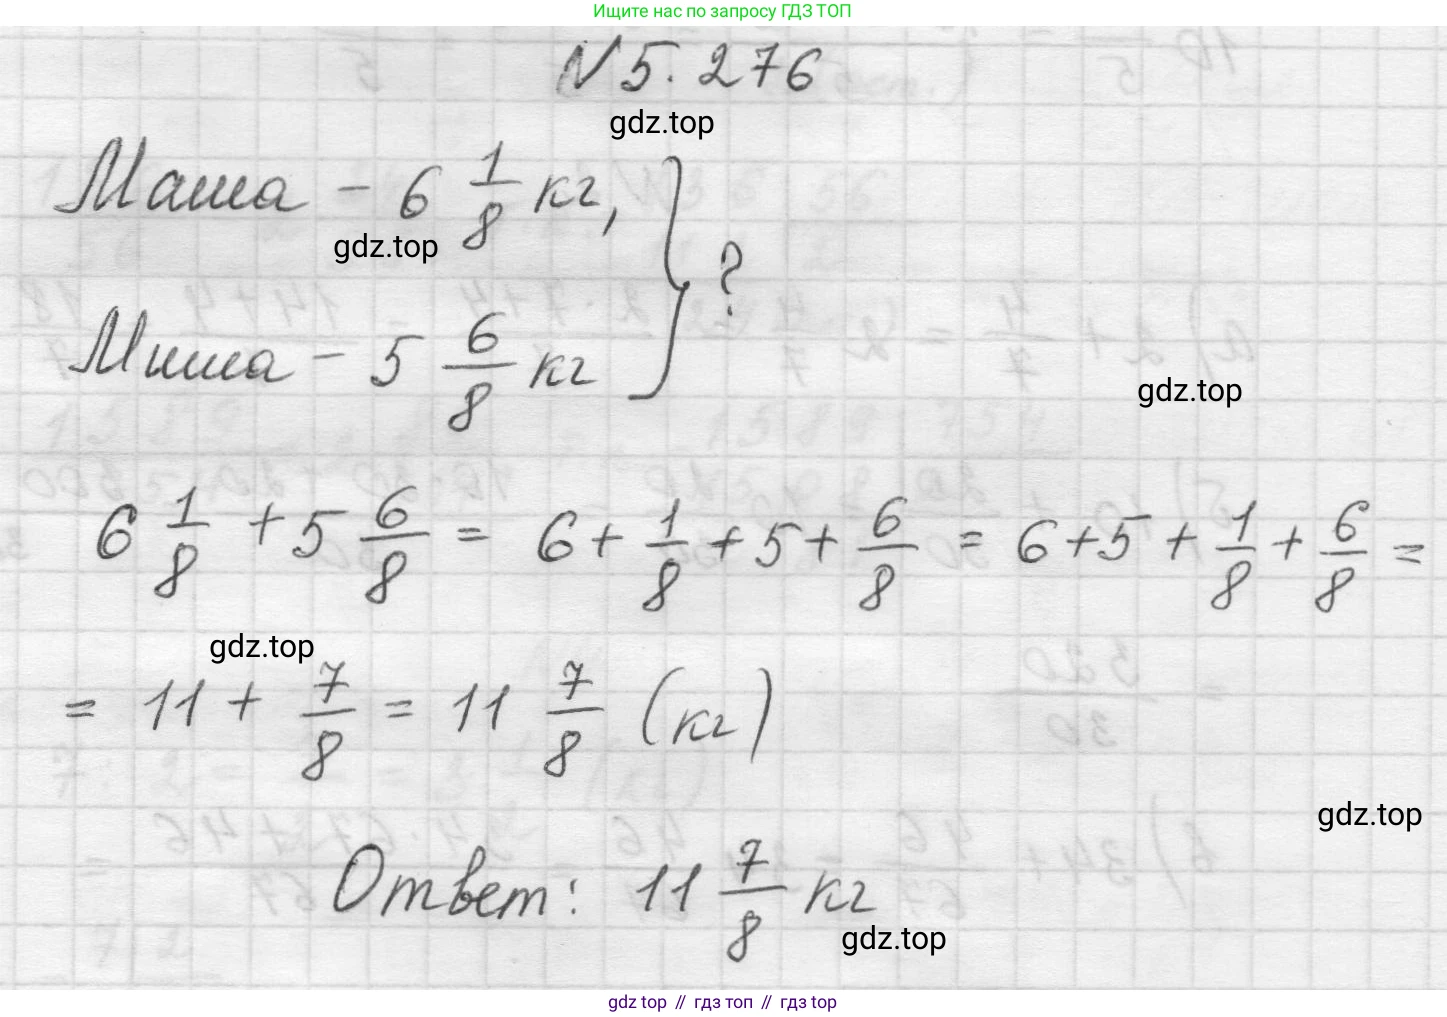 Ищите нас по запросу ГДЗ ТОП
N 5. 276
gdz.top
Маша - 6 1/8 кг,
gdz.top
?
Миша - 5 6/8 кг
gdz.top
6 1/8 + 5 6/8 = 6 + 1/8 + 5 + 6/8 = 6 + 5 + 1/8 + 6/8 =
gdz.top
= 11 + 7/8 = 11 7/8 (кг)
gdz.top
Ответ: 11 7/8 кг
gdz.top
gdz top // гдз топ // гдз top